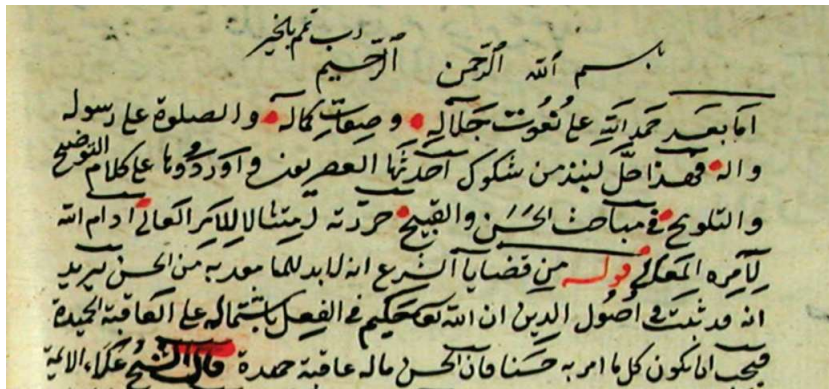 رب تمم بالخير
باسم الله الرحمن الرحيم
اما بعد حمد الله على نعوت جلاله وصفات كماله والصلوة على رسوله
واله فهذا حل لنبذ من شكوك احدثها العصريون واوردوها على كلام التوضيح
والتلويح في مباحث الحسن والقبيح حررته امتثالا للامر العالي ادام الله
لآمره المعالي قوله من قضايا الشرع انه لابد للمامور به من الحسن يريد
انه قد ثبت في اصول الدين ان الله تعالى حكيم في الفعل باشتماله على العاقبة الحميدة
فيجب ان يكون كل ما امر به حسنا فان الحسن ماله عاقبة حميدة قال الشيخ علاء الائمة